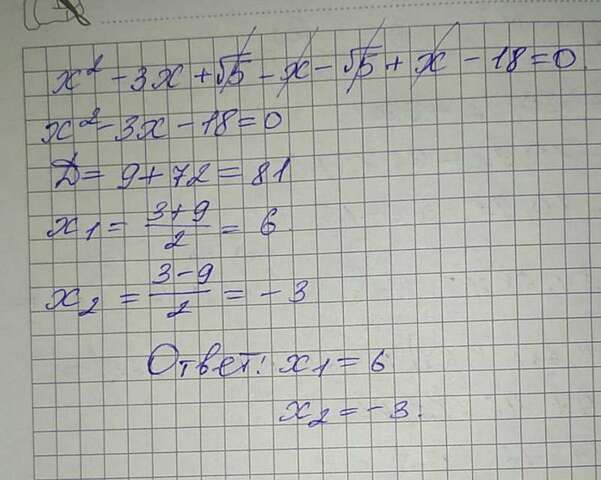 x² - 3x + √5 - x - √5 + x - 18 = 0
x² - 3x - 18 = 0
D = 9 + 72 = 81
x₁ = (3+9)/2 = 6
x₂ = (3-9)/2 = -3
Ответ: x₁ = 6
x₂ = -3.